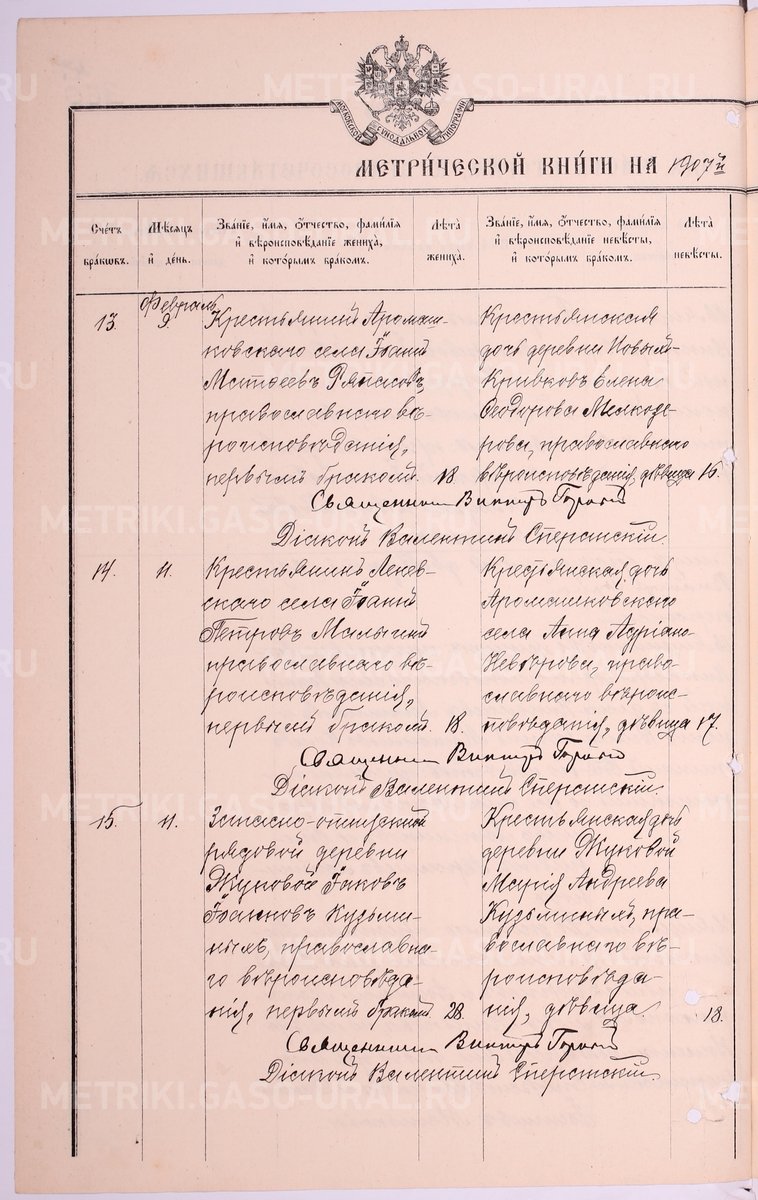 МОСКОВСКОЙ СѴНОДАЛЬНОЙ ТИПОГРАФІИ
МЕТРИ́ЧЕСКОЙ КНИ́ГИ НА 1907й
Сче́тъ бра́кѡвъ.
Мѣ́сяцъ и҆ де́нь.
Зва́ніе, и҆́мя, ѻ҆́тчество, фами́лія и҆ вѣроисповѣ́даніе жениха̀, и҆ кото́рымъ бра́комъ.
Лѣ́та жениха̀.
Зва́ніе, и҆́мя, ѻ҆́тчество, фами́лія и҆ вѣроисповѣ́даніе невѣ́сты, и҆ кото́рымъ бра́комъ.
Лѣ́та невѣ́сты.
Февраль
13. 9. Крестьянинъ Аромаш-
ковскаго села Іоаннъ
православнаго вѣ-
роисповѣданія,
первымъ бракомъ. 18
Крестьянская
дочь деревни
Елена
Ѳеодорова
православнаго
вѣроисповѣданія, дѣвица 16.
Священникъ Викторъ
Діаконъ Валентинъ Сперанскій.
14. 11. Крестьянинъ
скаго села Іоаннъ
Петровъ Малыгинъ
православнаго вѣ-
роисповѣданія,
первымъ бракомъ. 18.
Крестьянская дочь
Аромашковскаго
села Анна Адріано-
Невѣрова, право-
славнаго вѣроис-
повѣданія, дѣвица 17.
Священникъ Викторъ
Діаконъ Валентинъ Сперанскій.
15. 11. Запасно-отпускной
рядовой деревни
Жуковой Іаковъ
Іоанновъ Кузьми-
ныхъ, православна-
го вѣроисповѣда-
нія, первымъ бракомъ. 28.
Крестьянская дочь
деревни Жуковой
Марія Андреева
Кузьминыхъ, пра-
вославнаго вѣ-
роисповѣда-
нія, дѣвица. 18.
Священникъ Викторъ
Діаконъ Валентинъ Сперанскій.
METRIKI.GASO-URAL.RU